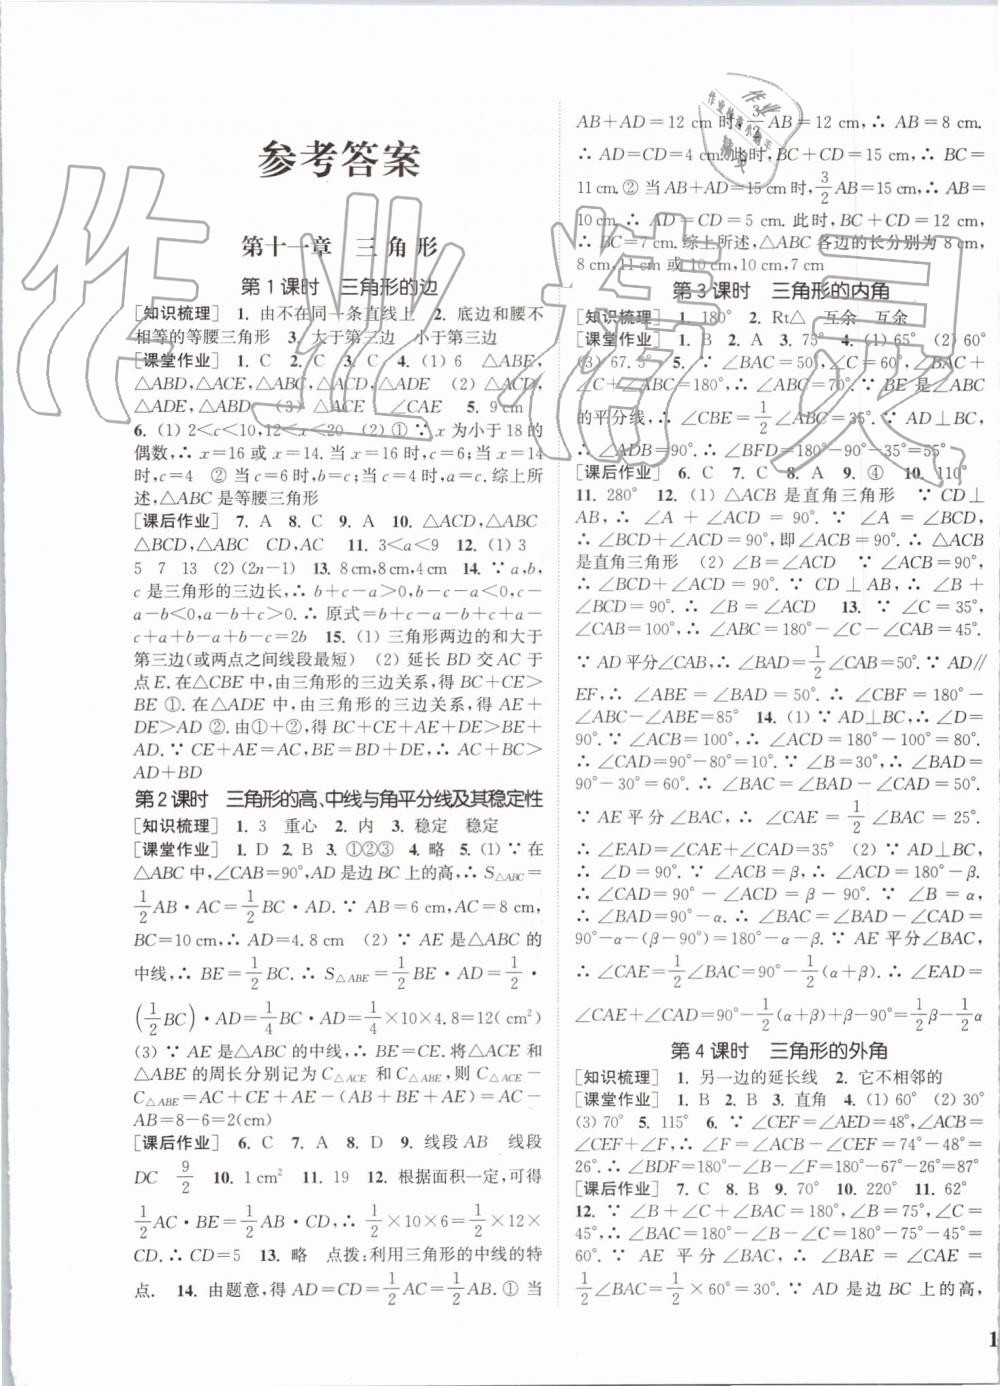 参考答案
第十一章 三角形
第1课时 三角形的边
[知识梳理] 1. 由不在同一条直线上 2. 底边和腰不
相等的等腰三角形 3. 大于第三边 小于第三边
[课堂作业] 1. C 2. C 3. C 4. (1) 6 △ABE,
△ABD,△ACE,△ABC,△ADE (2) △ACD,
△ADE,△ABD (3) △ACE ∠CAE 5. 9 cm
6. (1) 2<c<10,12<x<20 (2) ① ∵ x 为小于18的
偶数,∴ x=16或x=14. 当x=16时,c=6;当x=14
时,c=4 ② 当c=6时,b=c;当c=4时,a=c.综上所
述,△ABC是等腰三角形
[课后作业] 7. A 8. C 9. A 10. △ACD,△ABC
△BCD,△ABC CD,AC 11. 3<a<9 12. (1) 3
5 7 13 (2) (2n−1) 13. 8 cm,8 cm,4 cm 14. ∵ a,b,
c是三角形的三边长,∴ b+c−a>0,b−c−a<0,c−
a−b<0,a−b+c>0.∴ 原式=b+c−a−b+c+a−
c+a+b−a+b−c=2b 15. (1) 三角形两边的和大于
第三边(或两点之间线段最短) (2) 延长BD交AC于
点E.在△CBE中,由三角形的三边关系,得BC+CE>
BE ①.在△ADE中,由三角形的三边关系,得AE+
DE>AD ②.由①+②,得BC+CE+AE+DE>BE+
AD.∵ CE+AE=AC,BE=BD+DE,∴ AC+BC>
AD+BD
第2课时 三角形的高、中线与角平分线及其稳定性
[知识梳理] 1. 3 重心 2. 内 3. 稳定 稳定
[课堂作业] 1. D 2. B 3. ①②③ 4. 略 5. (1) ∵ 在
△ABC中,∠CAB=90°,AD是边BC上的高,∴ S△ABC=
1/2 AB·AC=1/2 BC·AD.∵ AB=6 cm,AC=8 cm,
BC=10 cm,∴ AD=4.8 cm (2) ∵ AE是△ABC的
中线,∴ BE=1/2 BC.∴ S△ABE=1/2 BE·AD=1/2·
(1/2 BC)·AD=1/4 BC·AD=1/4×10×4.8=12(cm²)
(3) ∵ AE是△ABC的中线,∴ BE=CE.将△ACE和
△ABE的周长分别记为C△ACE和C△ABE,则C△ACE−
C△ABE=AC+CE+AE−(AB+BE+AE)=AC−
AB=8−6=2(cm)
[课后作业] 6. C 7. A 8. D 9. 线段AB 线段
DC 9/2 10. 1 cm² 11. 19 12. 根据面积一定,可得
1/2 AC·BE=1/2 AB·CD,∴ 1/2×10×6=1/2×12×
CD.∴ CD=5 13. 略 点拨:利用三角形的中线的特
点. 14. 由题意,得AD=CD=1/2 AC=1/2 AB.① 当
AB+AD=12 cm时,3/2 AB=12 cm,∴ AB=8 cm.
∴ AD=CD=4 cm.此时,BC+CD=15 cm,∴ BC=
11 cm.② 当AB+AD=15 cm时,3/2 AB=15 cm,∴ AB=
10 cm.∴ AD=CD=5 cm.此时,BC+CD=12 cm,
∴ BC=7 cm.综上所述,△ABC各边的长分别为8 cm,
8 cm,11 cm或10 cm,10 cm,7 cm
第3课时 三角形的内角
[知识梳理] 1. 180° 2. Rt△ 互余 互余
[课堂作业] 1. B 2. A 3. 75° 4. (1) 65° (2) 60°
(3) 67.5° 5. ∵ ∠BAC=50°,∠C=60°,∠BAC+
∠C+∠ABC=180°,∴ ∠ABC=70°.∵ BE是∠ABC
的平分线,∴ ∠CBE=1/2∠ABC=35°.∵ AD⊥BC,
∴ ∠ADB=90°.∴ ∠BFD=180°−90°−35°=55°
[课后作业] 6. C 7. C 8. A 9. ④ 10. 110°
11. 280° 12. (1) △ACB是直角三角形 ∵ CD⊥
AB,∴ ∠A+∠ACD=90°.∵ ∠A=∠BCD,
∴ ∠BCD+∠ACD=90°,即∠ACB=90°.∴ △ACB
是直角三角形 (2) ∠B=∠ACD ∵ ∠ACB=90°,
∴ ∠BCD+∠ACD=90°.∵ CD⊥AB,∴ ∠B+
∠BCD=90°.∴ ∠B=∠ACD 13. ∵ ∠C=35°,
∠CAB=100°,∴ ∠ABC=180°−∠C−∠CAB=45°.
∵ AD平分∠CAB,∴ ∠BAD=1/2∠CAB=50°.∵ AD∥
EF,∴ ∠ABE=∠BAD=50°.∴ ∠CBF=180°−
∠ABC−∠ABE=85° 14. (1) ∵ AD⊥BC,∴ ∠D=
90°.∵ ∠ACB=100°,∴ ∠ACD=180°−100°=80°.
∴ ∠CAD=90°−80°=10°.∵ ∠B=30°,∴ ∠BAD=
90°−30°=60°.∴ ∠BAC=∠BAD−∠CAD=50°.
∵ AE平分∠BAC,∴ ∠CAE=1/2∠BAC=25°.
∴ ∠EAD=∠CAE+∠CAD=35° (2) ∵ AD⊥BC,
∴ ∠D=90°.∵ ∠ACB=β,∴ ∠ACD=180°−β.
∴ ∠CAD=90°−∠ACD=β−90°.∵ ∠B=α,
∴ ∠BAD=90°−α.∴ ∠BAC=∠BAD−∠CAD=
90°−α−(β−90°)=180°−α−β.∵ AE平分∠BAC,
∴ ∠CAE=1/2∠BAC=90°−1/2(α+β).∴ ∠EAD=
∠CAE+∠CAD=90°−1/2(α+β)+β−90°=1/2β−1/2α
第4课时 三角形的外角
[知识梳理] 1. 另一边的延长线 2. 它不相邻的
[课堂作业] 1. B 2. B 3. 直角 4. (1) 60° (2) 30°
(3) 70° 5. 115° 6. ∵ ∠CEF=∠AED=48°,∠ACB=
∠CEF+∠F,∴ ∠F=∠ACB−∠CEF=74°−48°=
26°.∴ ∠BDF=180°−∠B−∠F=180°−67°−26°=87°
[课后作业] 7. C 8. B 9. 70° 10. 220° 11. 62°
12. ∵ ∠B+∠C+∠BAC=180°,∠B=75°,∠C=
45°,∴ ∠BAC=180°−∠B−∠C=180°−75°−45°=
60°.∵ AE平分∠BAC,∴ ∠BAE=∠CAE=
1/2∠BAC=1/2×60°=30°.∵ AD是边BC上的高,
1
作业精灵